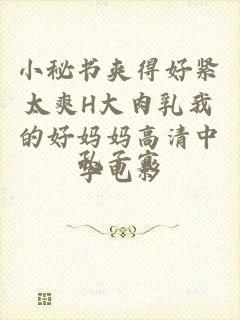 小秘书夹得好紧
太爽H大肉乳我
的好妈妈高清中
字电影